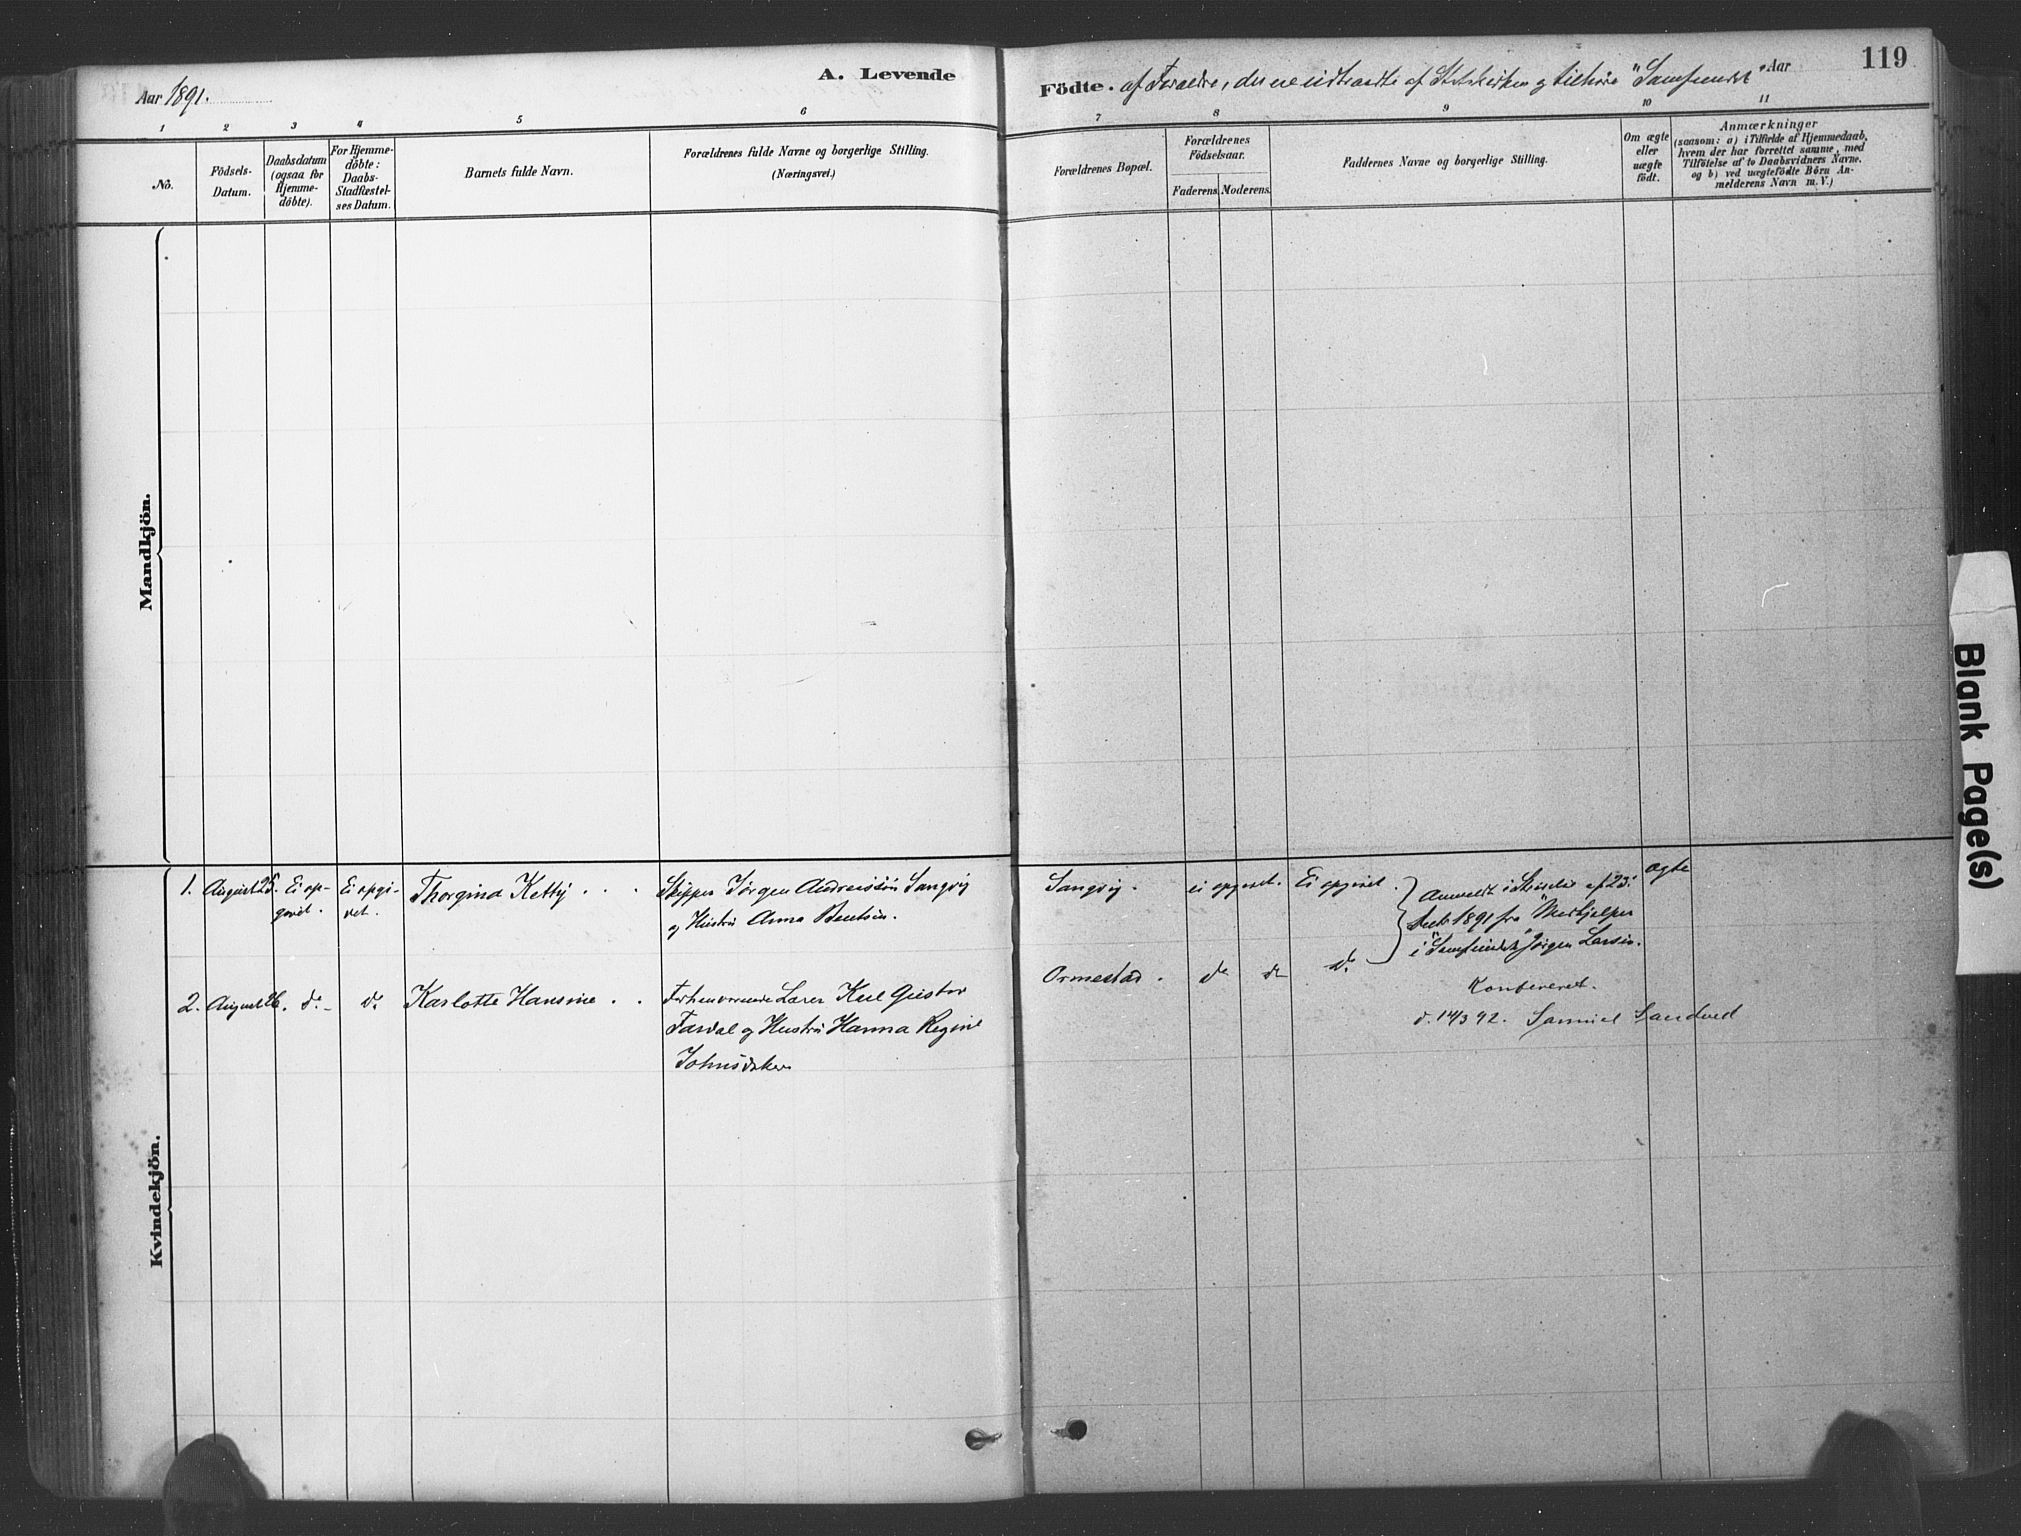 Aar 1891.
A. Levende
Födte. af Forældre, der ere udtraadte af Statskirken og tilhøre "Samfundet".
Aar
119
1
2
3
4
5
6
7
8
9
10
11
No.
Födsels-
Datum.
Daabsdatum
(ogsaa for
Hjemme-
döbte).
For Hjemme-
döbte:
Daabs-
Stadfæstel-
ses Datum.
Barnets fulde Navn.
Forældrenes fulde Navne og borgerlige Stilling.
(Næringsvei.)
Forældrenes Bopæl.
Forældrenes
Födselsaar.
Faderens.
Moderens.
Faddernes Navne og borgerlige Stilling.
Om ægte
eller
uægte
födt.
Anmærkninger
(saasom: a) i Tilfælde af Hjemmedaab,
hvem der har forrettet samme, med
Tilföielse af to Daabsvidners Navne.
og b) ved uægtefödte Börn An-
melderens Navn m. V.)
Mandkjön.
Kvindekjön.
1. August 25. Ei op-
givet.
Ei opgi-
vet.
Thorgina Ketty . . .
Skipper Jørgen Andreassøn Sangvig
og Hustru Anna Bentsen.
Sangvig.
ei opgivet.
Ei opgivet.
Anmeldt i Skrivelse af 23.
1891 fra "Medhjelper
i "Samfundet" Jørgen Larsen.
ægte
2. August 26. do do Karlotte Hansine . .
Forhenværende Lærer Karl Gustav
Tardal og Hustru Hanna Regine
Ormestad. do do do
Konfereret.
d. 14/3 92. Samuel Sandved
Blank Page(s)